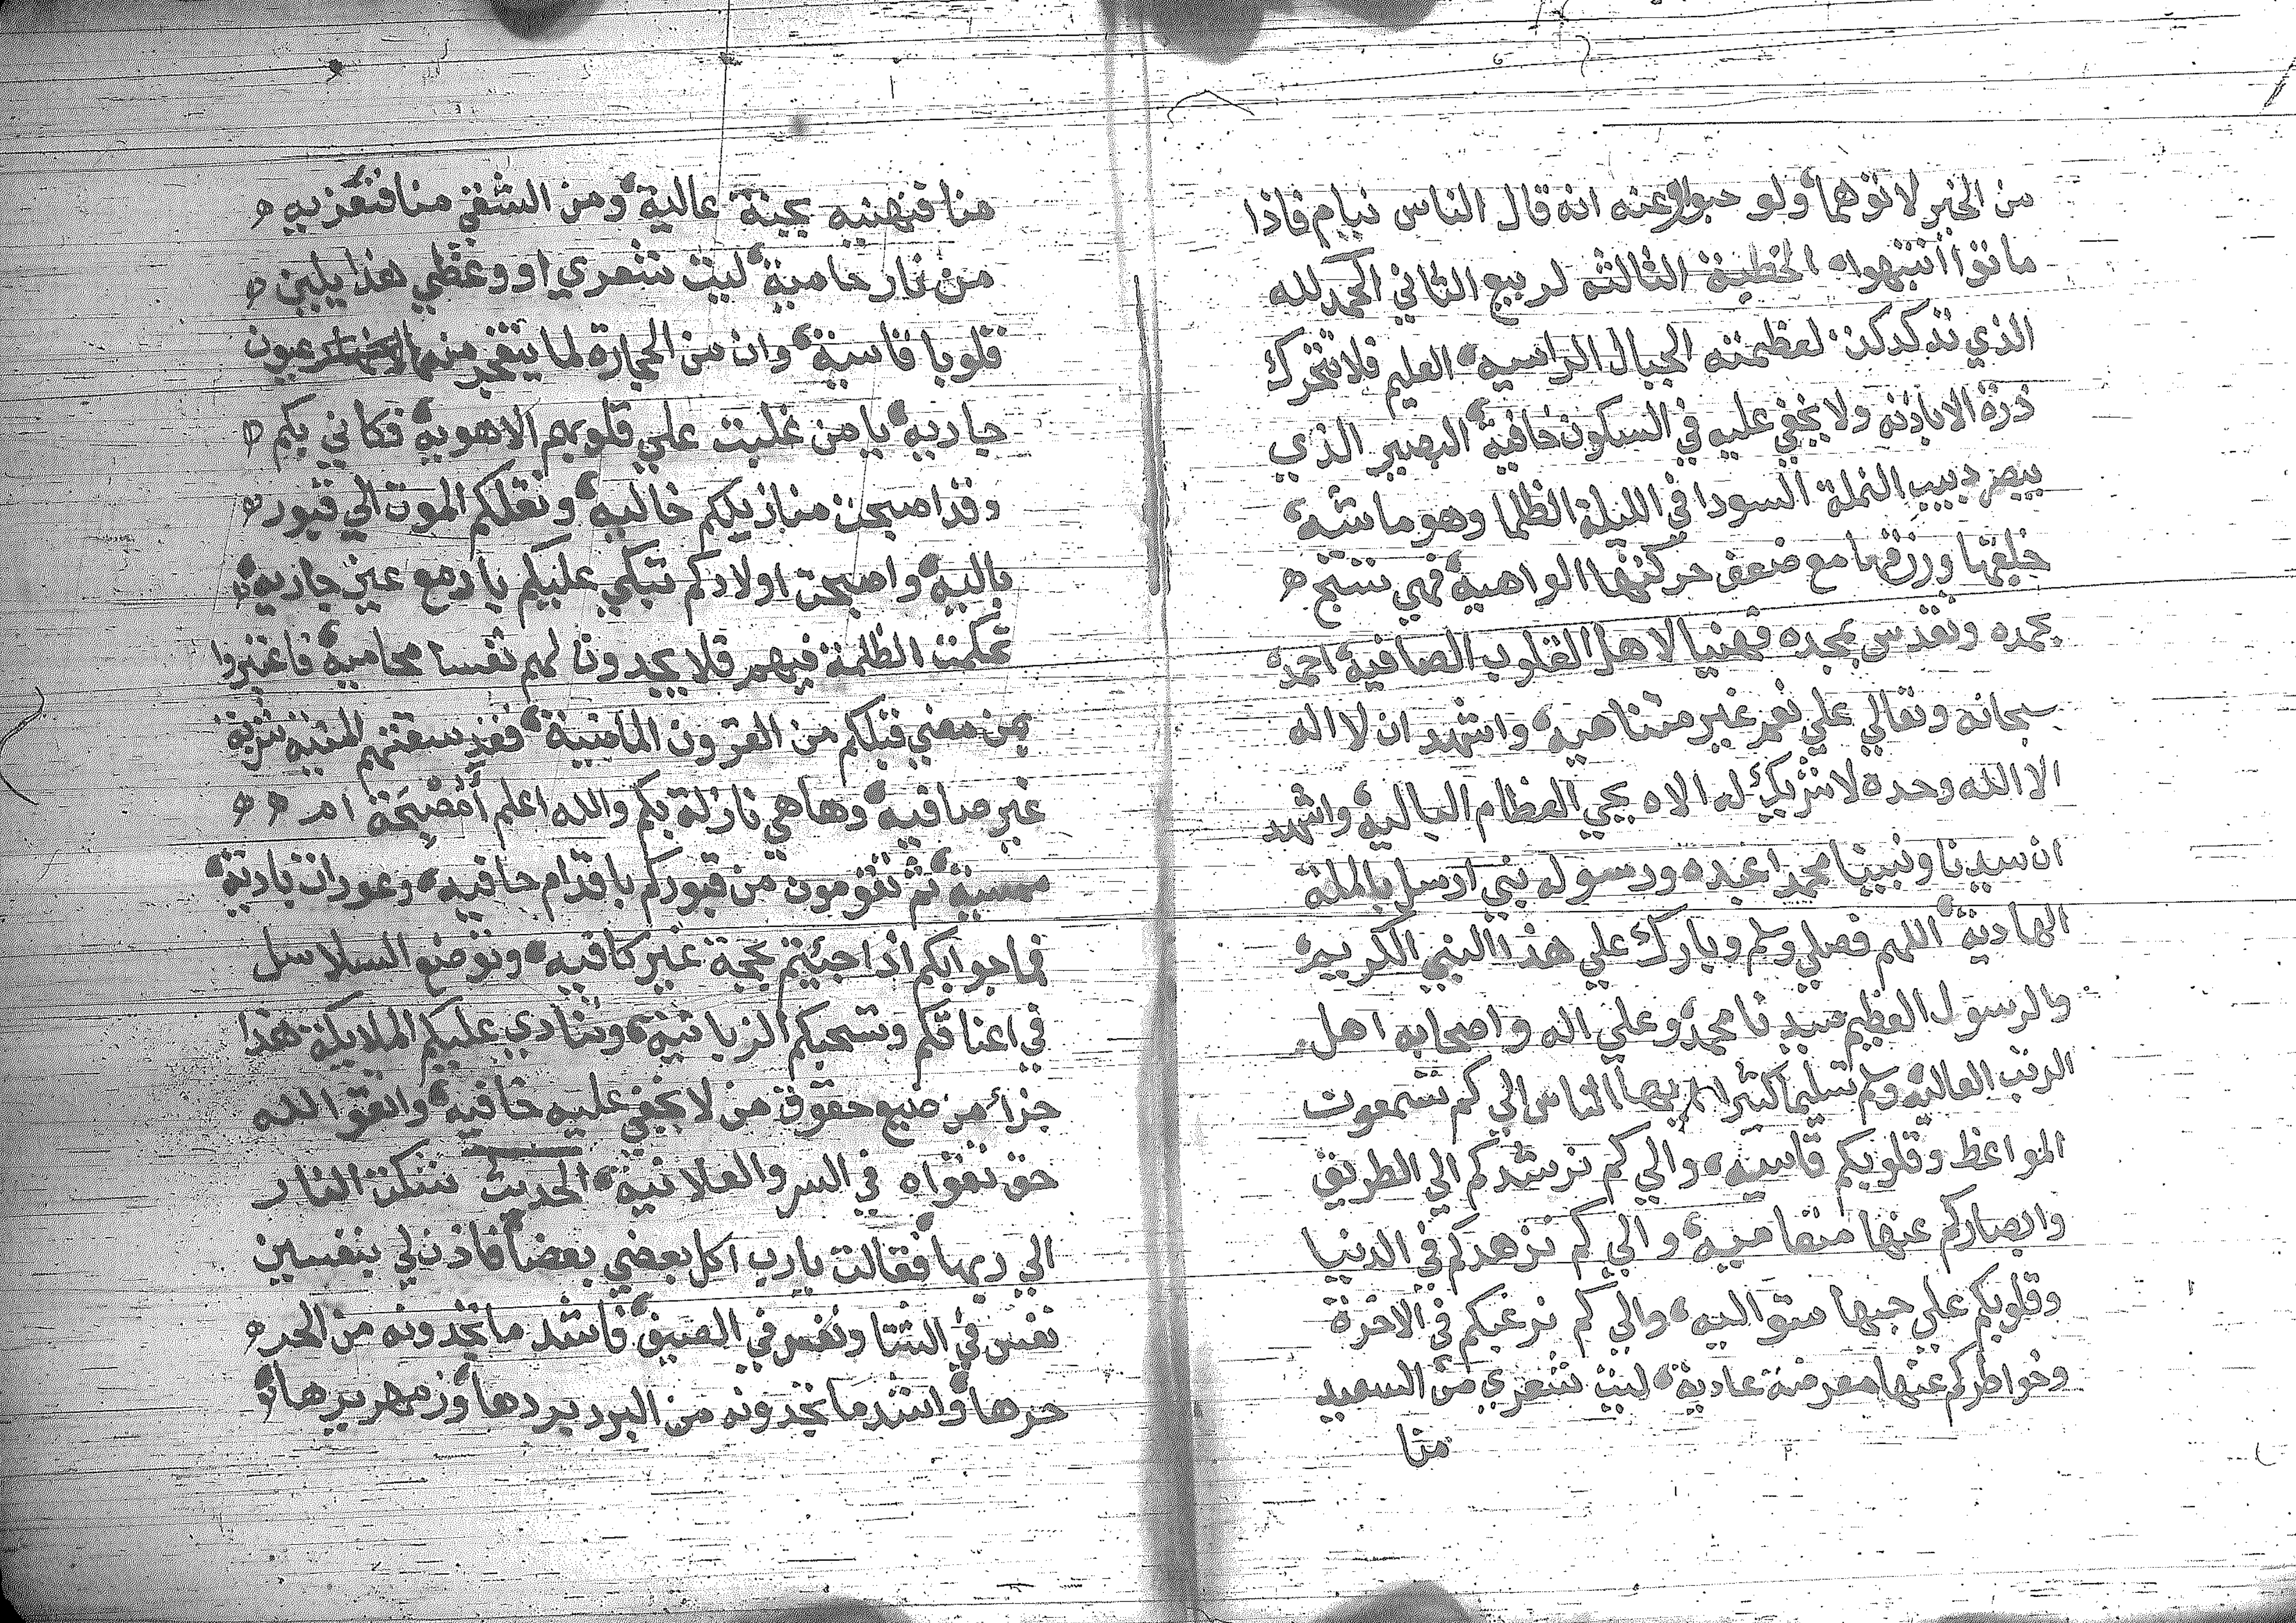 من الخير لاتوهما ولو حبوا وعنه انه قال الناس نيام فاذا
ماتوا انتبهوا الخطبة الثالثة لربيع الثاني الحمد لله
الذي تدكدكت لعظمته الجبال الراسيه العليم فلا تتحرك
ذرة الا باذنه ولا يخفي عليه في السكون خافية البصير الذي
يبصر دبيب النملة السودا في الليلة الظلما وهو ماشه
خلقها ورزقها مع ضعف حركتها الواهية فهي تسبح
بحمده وتقدس بمجده فهنيا لاهل القلوب الصافيه احمده
سبحانه وتعالي علي نعم غير متناهيه واشهد ان لا اله
الا الله وحده لا شريك له الاه يحي العظام الباليه واشهد
ان سيدنا ونبينا محمدا عبده ورسوله نبي ارسل بالملة
الهادية اللهم فصلي وسلم وبارك علي هذا النبي الكريم
والرسول العظيم سيدنا محمد وعلي اله واصحابه اهل
الرتب العاليه وسلم تسليما كثيرا ايها الناس الي كم تسمعون
المواعظ وقلوبكم قاسيه والي كم نرشدكم الي الطريق
وابصاركم عنها متعاميه والي كم نزهدكم في الدنيا
وقلوبكم علي حبها متواليه والي كم نرغبكم في الاخرة
وخواطركم عنها معرضة عادية ليت شعري من السعيد
منا
منا فنهنيه بجنة عالية ومن الشقي منا فنعزيه
من نار حامية ليت شعري او وعظي هذا يلين
قلوبا قاسية وان من الحجارة لما يتفجر منه عيون
جاريه يا من غلبت علي قلوبهم الاهوية فكاني بكم
وقد اصبحت منازيلكم خاليه ونقلكم الموت الي قبور
باليه واصبحت اولادكم تبكي عليكم بادمع عين جاريه
تحكمت الظلمة فيهم فلا يجدون لهم نفسا محاميه فاعتبروا
بمن مضي قبلكم من القرون الماضية فقد سقتهم المنيه شربة
غير صافيه وها هي نازلة بكم والله اعلم أمُصْبِحَة ام
ممسية ثم تقومون من قبوركم باقدام حافيه وعورات بادية
فما جوابكم اذا جيتم بحجة غير كافيه وتوضع السلاسل
في اعناقكم وتسحبكم الزبانية وتنادي عليكم الملايكة هذا
جزاء من ضيع حقوق من لا يخفي عليه خافيه واتقوا الله
حق تقواه في السر والعلانية الحديث شكت النار
الي ربها فقالت يارب اكل بعضي بعضا فاذن لي بنفسين
نفس في الشتا ونفس في الصيف فاشد ما تجدونه من الحر
حرها واشد ما تجدونه من البرد بردها وزمهريرها